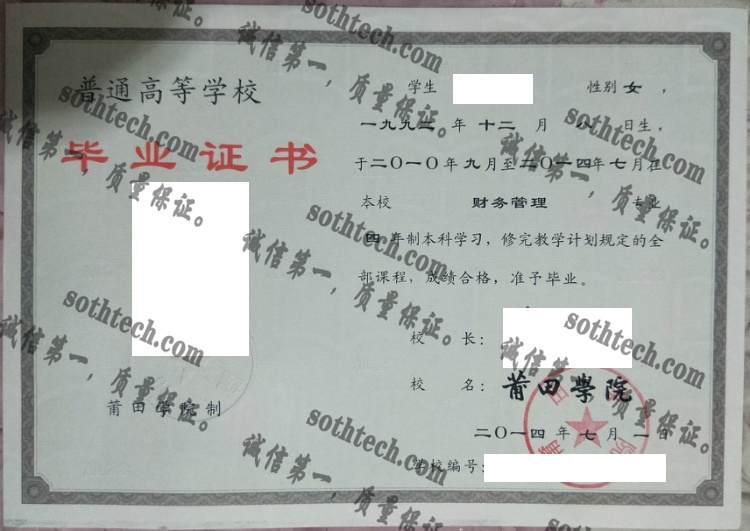 普通高等学校
毕业证书
莆田学院制
学生 性别 女，
一九九二 年 十二 月 八 日生，
于二〇一〇年九月至二〇一四年七月在
本校 财务管理 专业
四年制本科学习，修完教学计划规定的全
部课程，成绩合格，准予毕业。
校 长：
校 名：莆田學院
二〇一四年七月一日
学校编号：
sothtech.com
诚信第一，质量保证。
sothtech.com
诚信第一，质量保证。
sothtech.com
诚信第一，质量保证。
sothtech.com
诚信第一，质量保证。
sothtech.com
诚信第一，质量保证。
sothtech.com
诚信第一，质量保证。
sothtech.com
诚信第一，质量保证。
sothtech.com
诚信第一，质量保证。